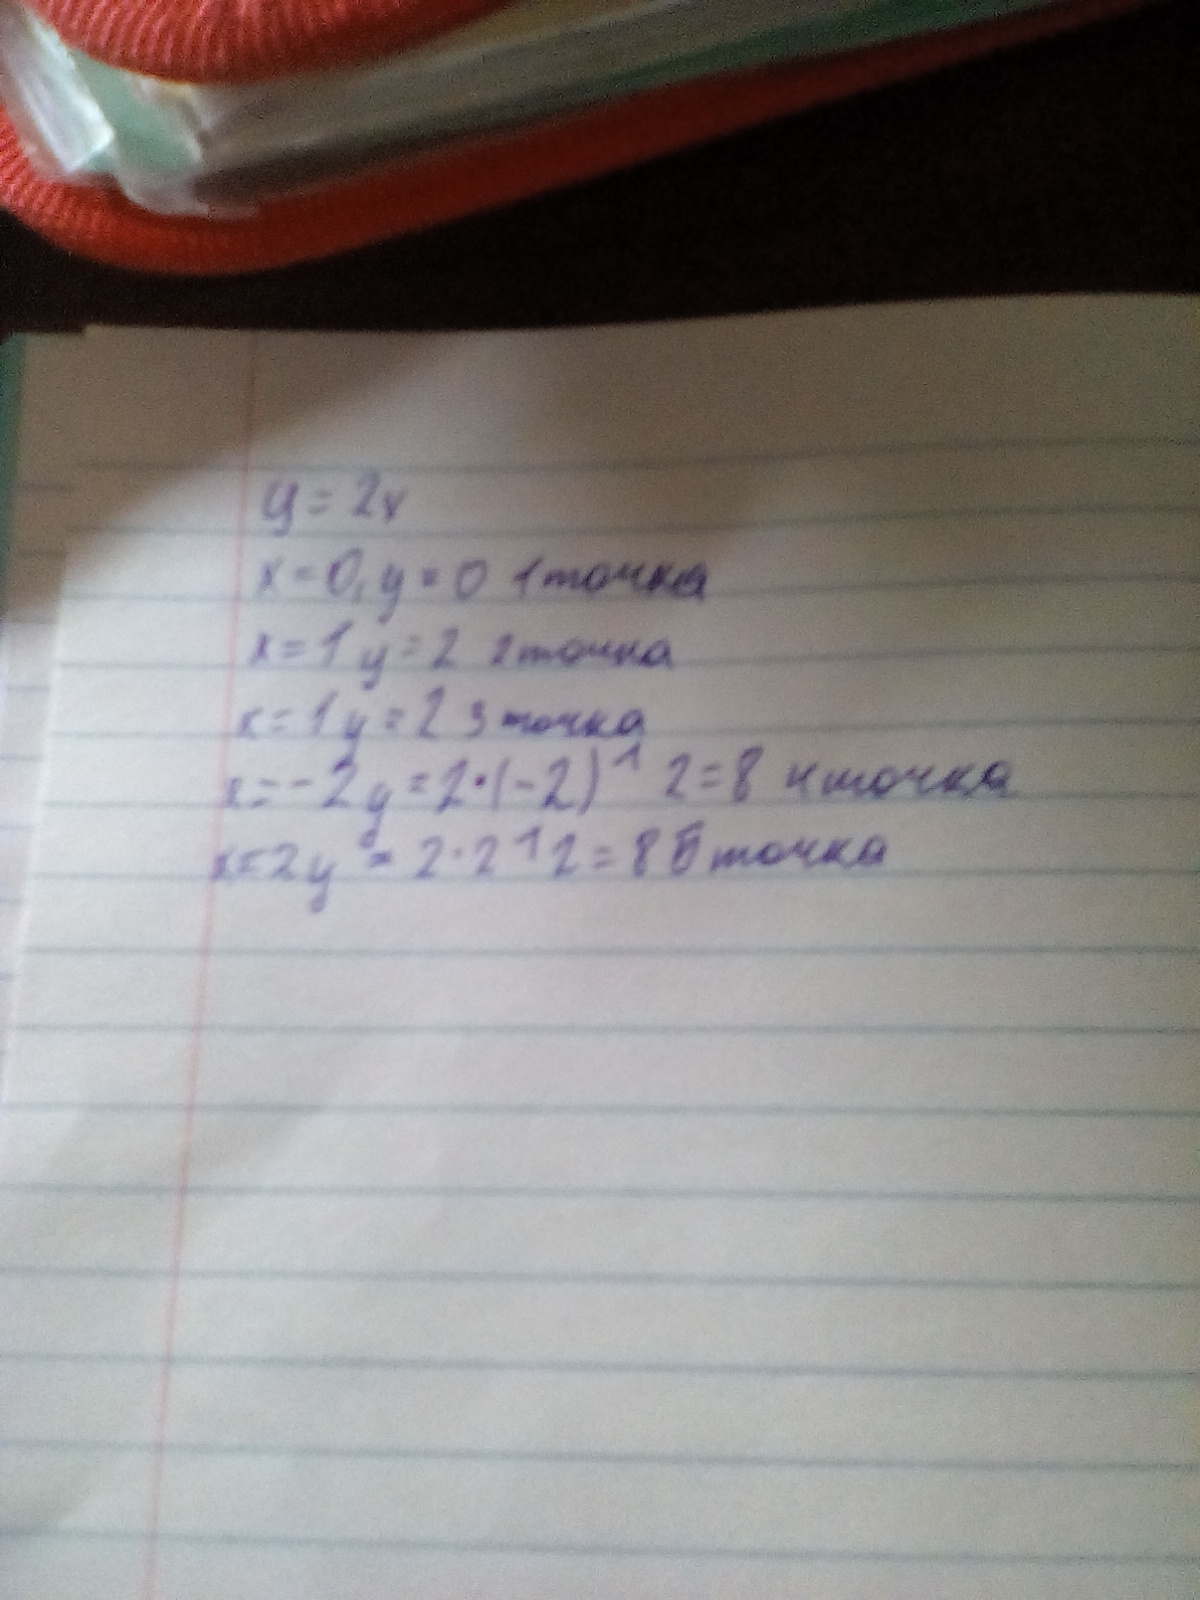 y = 2x
x = 0, y = 0 1 точка
x = 1 y = 2 2 точка
x = 1 y = 2 3 точка
x = -2 y = 2·(-2)^1 2 = 8 4 точка
x = 2 y = 2·2^1 2 = 8 5 точка